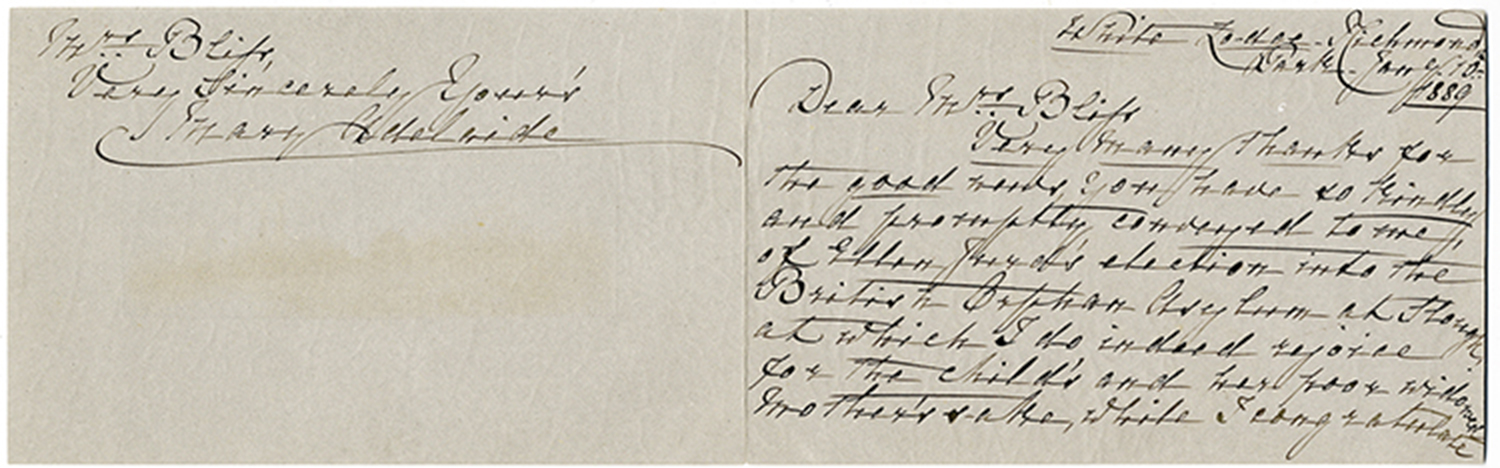 White Lodge. Richmond
Park. Jany 10th
1889
Dear Mrs Bliss
Very many thanks for
the good news you have so kindly
and promptly conveyed to me,
of Ellen election into the
British Orphan Asylum at Slough,
at which I do indeed rejoice
for the child's and her poor widowed
Mother's sake, while I congratulate
Mrs Bliss,
Very Sincerely Yours
Mary Adelaide